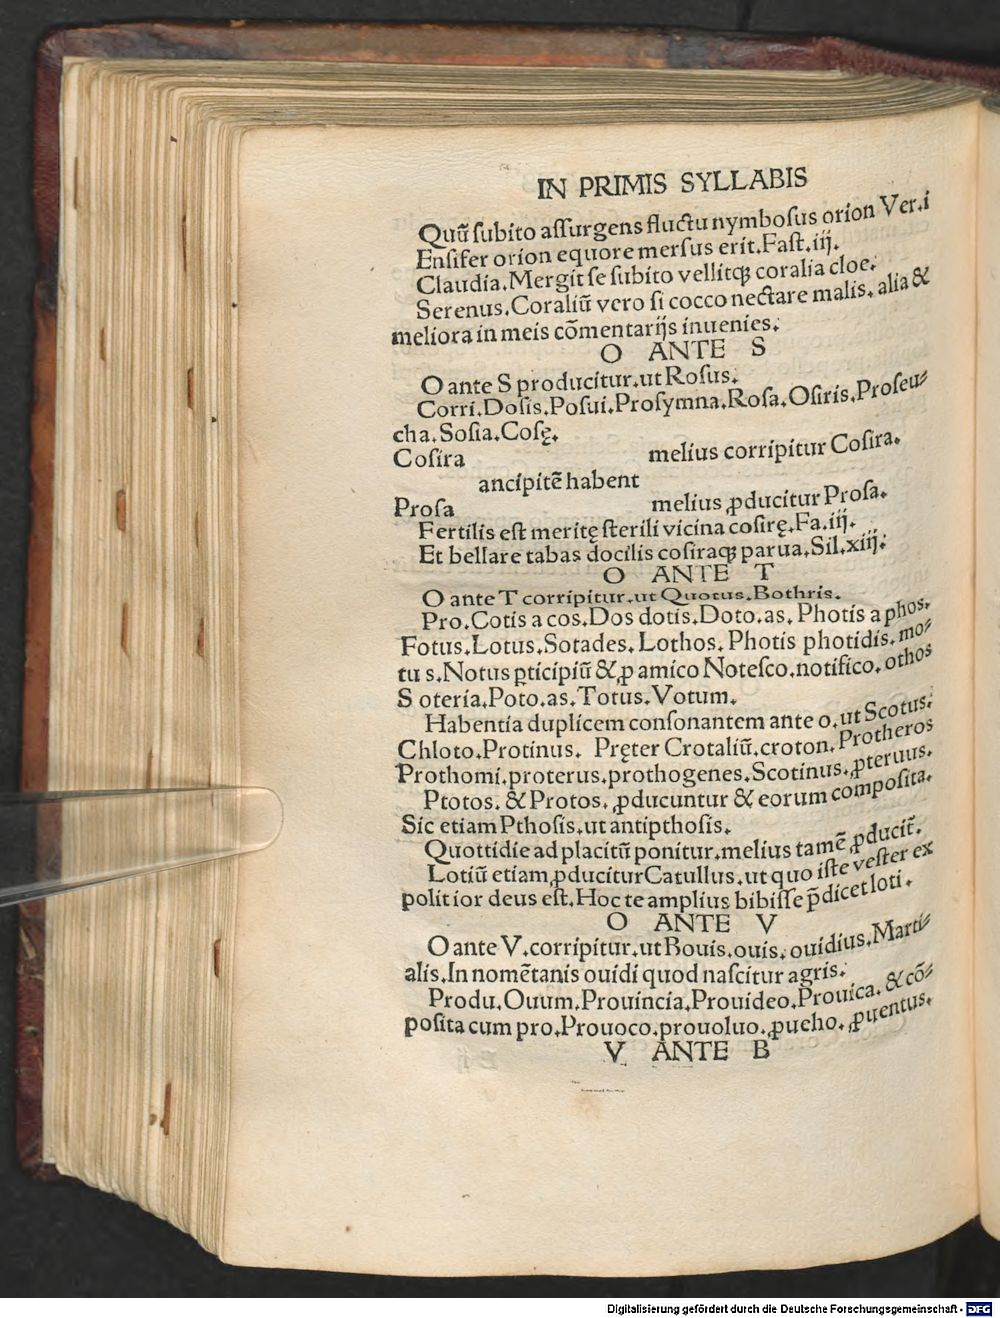 IN PRIMIS SYLLABIS
Quū ſubito aſſurgens fluctu nymboſus orion Ver.i
Enſifer orion equore merſus erit.Faſt.iij.
Claudia.Mergit ſe ſubito vellitqꝫ coralia cloe.
Serenus.Coraliū vero ſi cocco nectare malis. alia &
meliora in meis cōmentarijs inuenies.
O ANTE S
O ante S producitur.ut Roſus.
Corri.Doſis.Poſui.Proſymna.Roſa.Oſiris.Proſeu⸗
cha.Soſia.Coſę.
Coſira melius corripitur Coſira.
ancipitē habent
Proſa melius ꝓducitur Proſa.
Fertilis eſt meritę ſterili vicina coſirę.Fa.iij.
Et bellare tabas docilis coſiraqꝫ parua.Sil.xiij.
O ANTE T
O ante T corripitur.ut Quotus.Bothris.
Pro.Cotis a cos.Dos dotis.Doto.as. Photis a phos.
Fotus.Lotus.Sotades.Lothos. Photis photidis. mo⸗
tu s.Notus ꝑticipiū &ꝓ amico Noteſco.notifico.othos
S oteria.Poto.as.Totus.Votum.
Habentia duplicem conſonantem ante o.ut Scotus.
Chloto.Protinus. Pręter Crotaliū.croton.Protheros
Prothomi.proterus.prothogenes.Scotinus.ꝓteruus.
Ptotos. & Protos. ꝓducuntur & eorum compoſita.
Sic etiam Pthoſis.ut antipthoſis.
Quottidie ad placitū ponitur.melius tamē ꝓducit̄.
Lotiū etiam ꝓducitur Catullus.ut quo iſte veſter ex
polit ior deus eſt.Hoc te amplius bibiſſe p̄dicet loti.
O ANTE V
O ante V.corripitur.ut Bouis.ouis. ouidius.Marti⸗
alis.In nomētanis ouidi quod naſcitur agris.
Produ.Ouum.Prouincia.Prouideo.Prouica. & cō⸗
poſita cum pro.Prouoco.prouoluo.ꝓueho. ꝓuentus.
V ANTE B
Digitalisierung gefördert durch die Deutsche Forschungsgemeinschaft - DFG